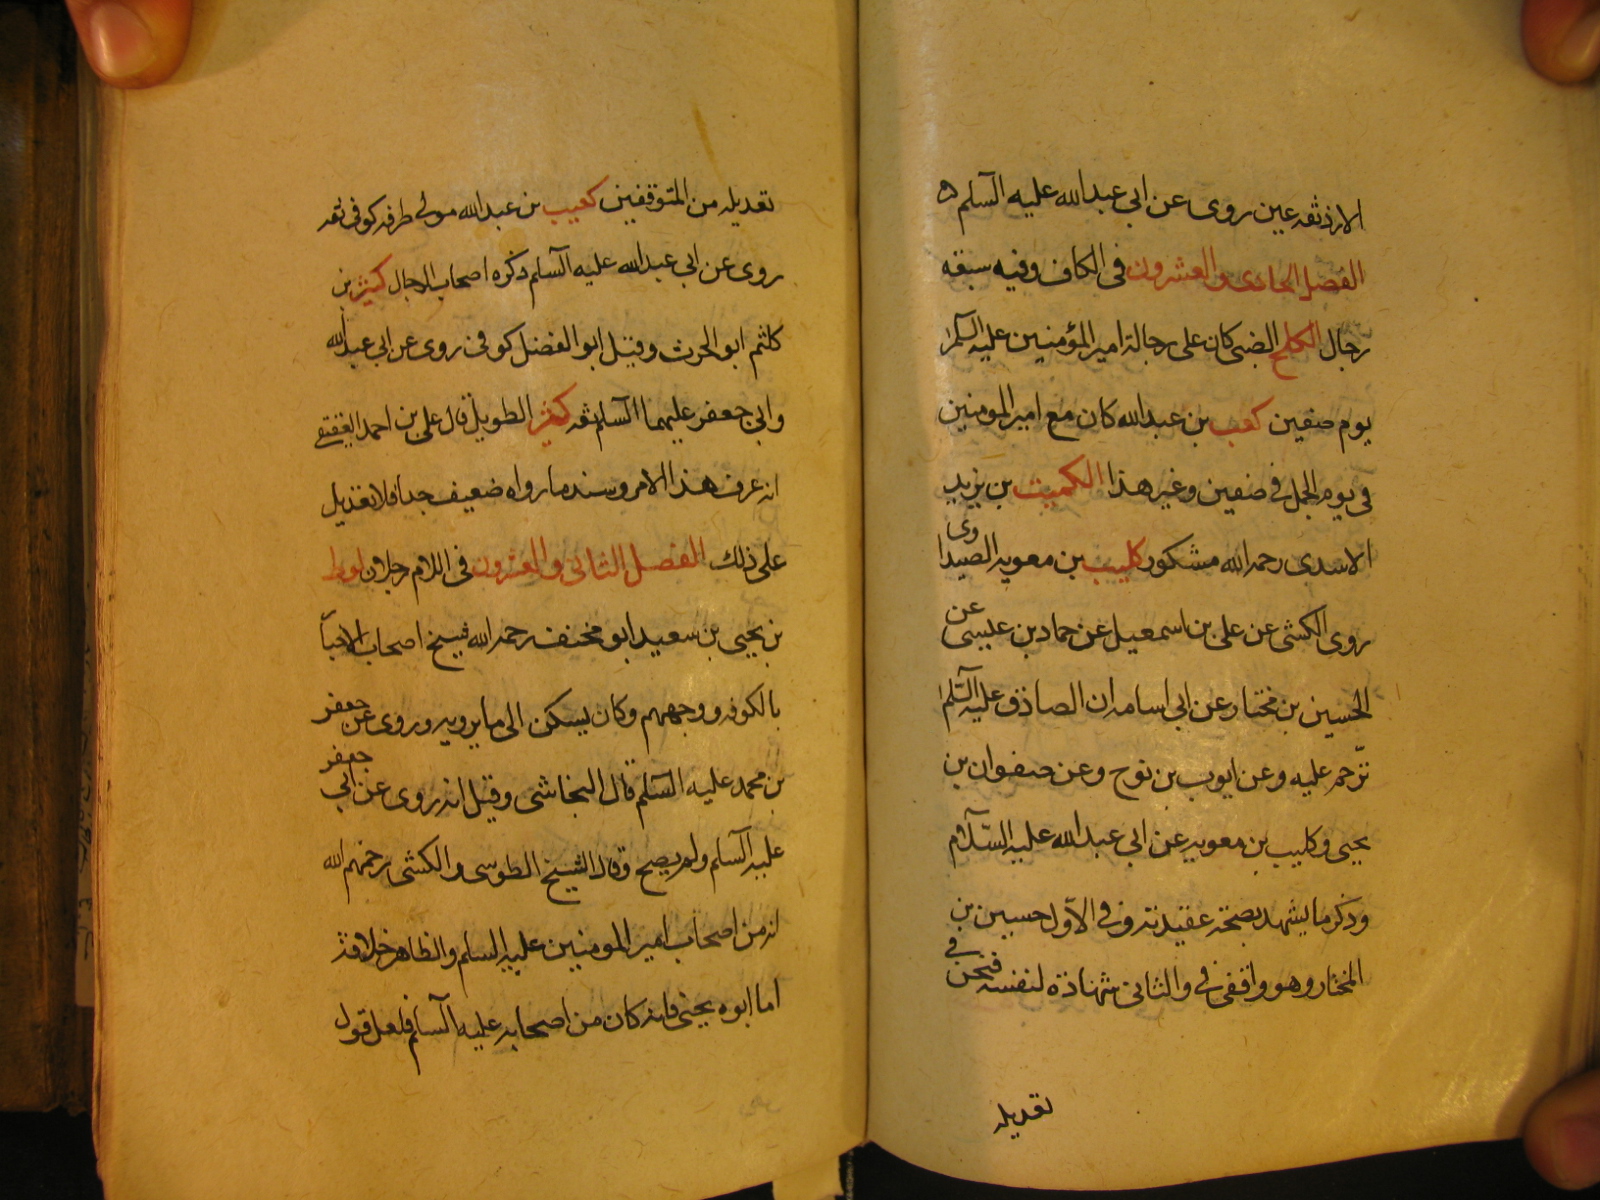 الازد ثقه عين روى عن ابى عبد الله عليه السلم ه
الفصل الحادى والعشرون فى الكاف وفيه سبعه
رجال الكلح الضبى كان على رجالة امير المؤمنين عليه السلم
يوم صفين كعب بن عبد الله كان مع امير المومنين
فى يوم الجمل فى صفين وغير هذا الكميت بن يزيد
الاسدى رحمه الله مشكور كليب بن معويه الصيداوى
روى الكشى عن على بن اسمعيل عن حماد بن عيسى عن
الحسين بن مختار عن ابى اسامه ان الصادق عليه السلم
ترحم عليه وعن ايوب بن نوح وعن صفوان بن
يحيى وكليب بن معويه عن ابى عبد الله عليه السلام
وذكر ما يشهد بصحة عقيدته وفى الاول حسين بن
المختار وهو واقفى وفى الثانى شهادة لنفسه فنحن فى
تعديله
تعديله من المتوقفين كعيب بن عبد الله مولى طرفه كوفى ثقه
روى عن ابى عبد الله عليه السلم ذكره اصحاب الرجال كثير بن
كلثم ابو الحرث وقيل ابو الفضل كوفى روى عن ابى عبد الله
وابى جعفر عليهما السلم ثقه كثير الطويل قال على بن احمد العقيقى
انه عرف هذا الامر وسند ما رواه ضعيف جدا فلا تعديل
على ذلك الفصل الثانى والعشرون فى اللام رجلان لوط
بن يحيى بن سعيد ابو مخنف رحمه الله شيخ اصحاب الاخبار
بالكوفه ووجههم وكان يسكن الى ما يرويه وروى عن جعفر
بن محمد عليه السلم قال النجاشى وقيل انه روى عن ابى جعفر
عليه السلم ولم يصح وقال الشيخ الطوسى والكشى رحمهم الله
انه من اصحاب امير المومنين عليه السلم والظاهر خلافه
اما ابوه يحيى فانه كان من اصحابه عليه السلم فلعل قول